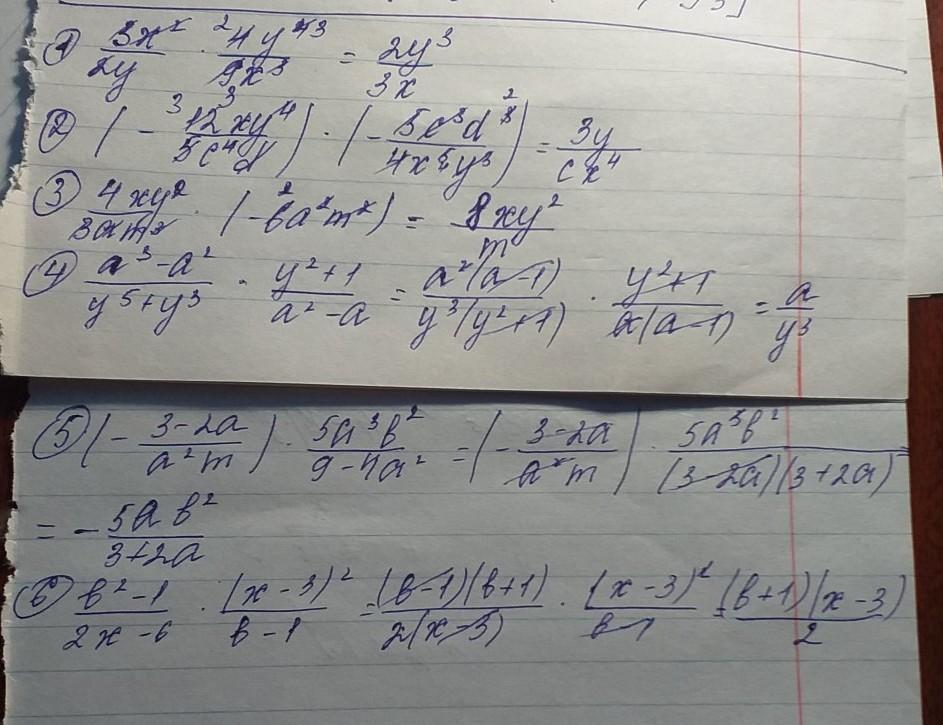 ① 3x²/2y · 4y⁴/9x³ = 2y³/3x
② (- 12xy⁴/5c⁴d) · (- 5c³d³/4x⁵y³) = 3y/cx⁴
③ 4xy²/3am² · (-6a²m²) = 8xy²/m
④ a³-a²/y⁵+y³ · y²+1/a²-a = a²(a-1)/y³(y²+1) · y²+1/a(a-1) = a/y³
⑤ (- 3-2a/a²m) · 5a³b²/9-4a² = (- 3-2a/a²m) · 5a³b²/(3-2a)(3+2a)
= - 5ab²/3+2a
⑥ b²-1/2x-6 · (x-3)²/b-1 = (b-1)(b+1)/2(x-3) · (x-3)²/b-1 = (b+1)(x-3)/2